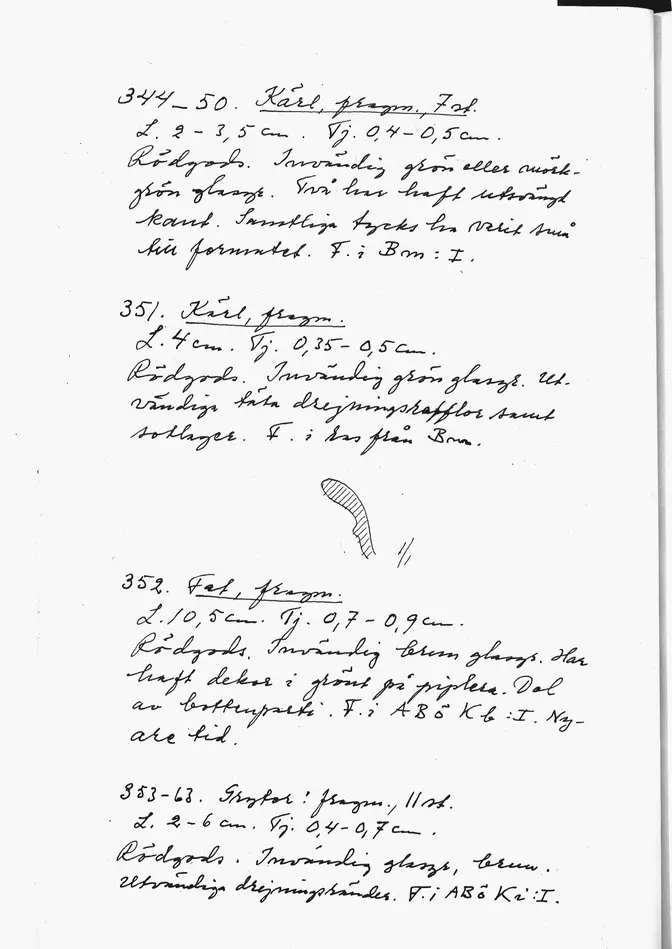 344-50. Kärl, fragm., 7 st.
L. 2-3,5 cm. Tj. 0,4-0,5 cm.
Rödgods. Invändig grön eller mörk-
grön glasyr. Två har haft utsvängt
kant. Samtliga tycks ha varit små
till formatet. F. i Bm: I.
351. Kärl, fragm.
L. 4 cm. Tj. 0,35-0,5 cm.
Rödgods. Invändig grön glasyr. Ut-
vändiga täta drejningsräfflor samt
sotlager. F. i ras från Bm.
1/1
352. Fat, fragm.
L. 10,5 cm. Tj. 0,7-0,9 cm.
Rödgods. Invändig brun glasyr. Har
haft dekor i grönt på piplera. Del
av bottenparti. F. i ABö Kb: I. Ny-
are tid.
353-63. Grytor: fragm., 11 st.
L. 2-6 cm. Tj. 0,4-0,7 cm.
Rödgods. Invändig glasyr, brun.
Utvändiga drejningsränder. F. i ABö Ki: I.